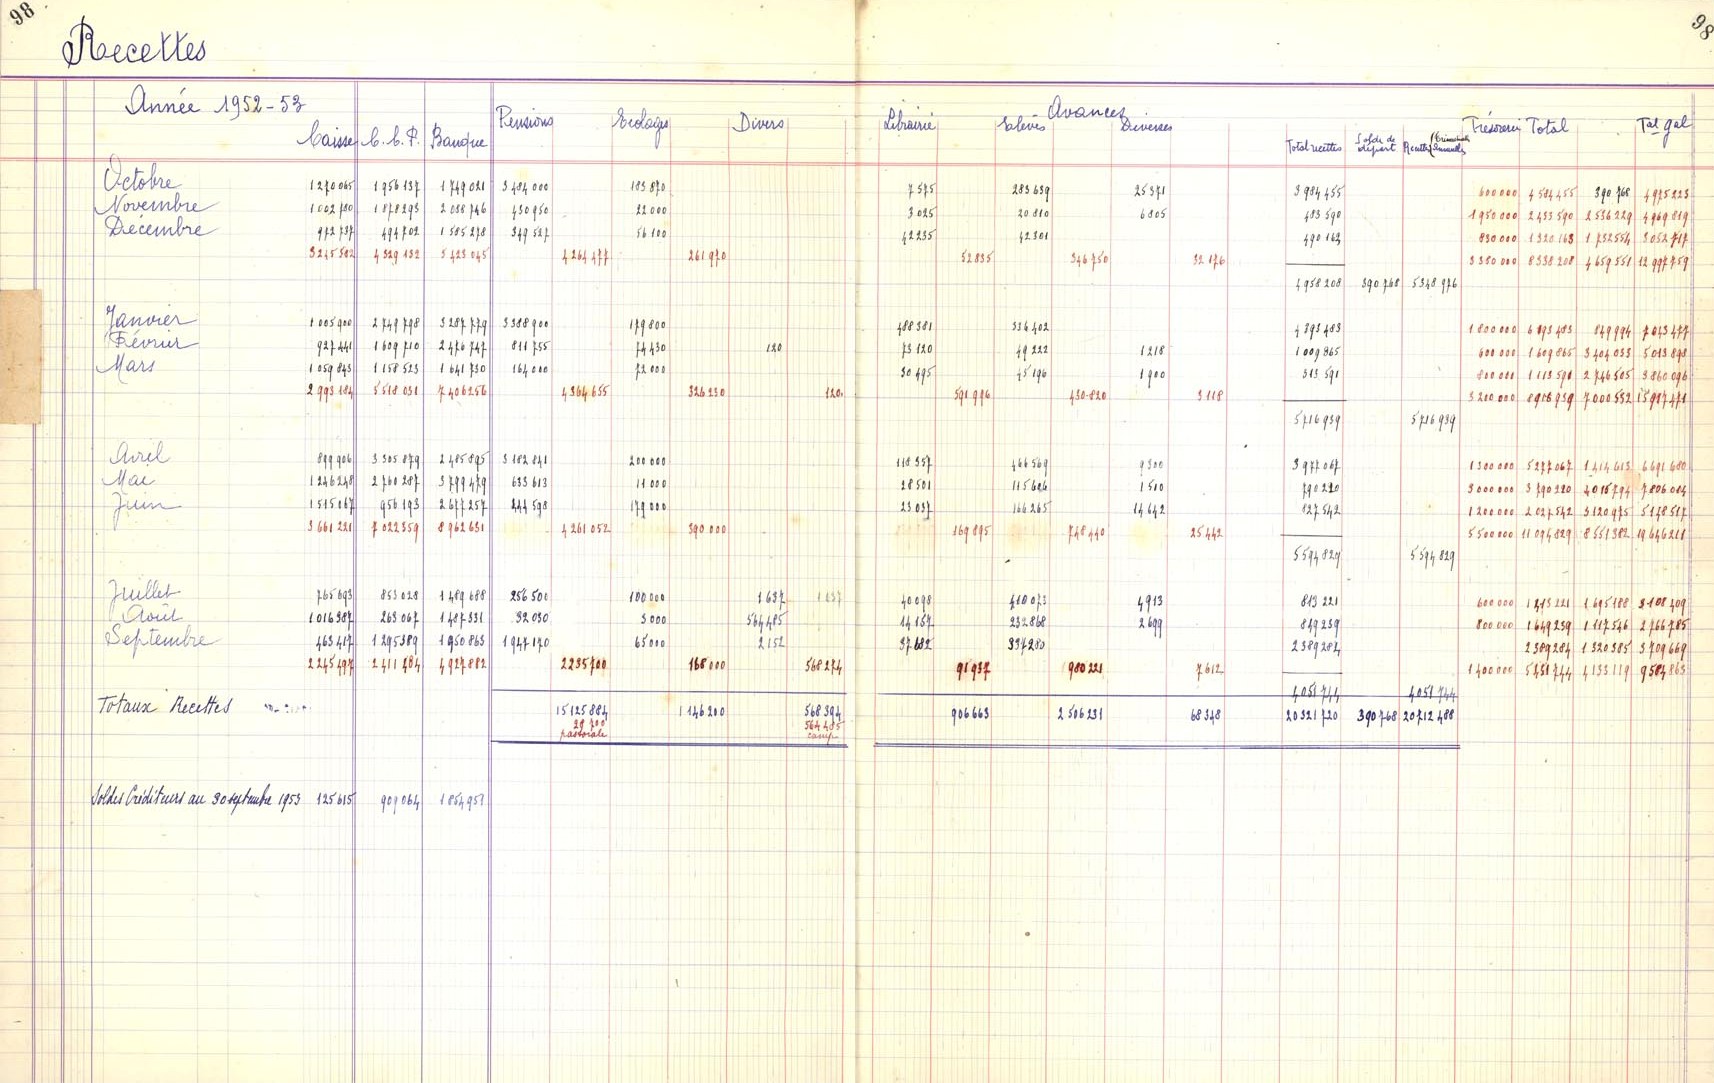 98 98
Recettes
Année 1952-53 Avances
Caisse C.C.P. Banque Pensions Ecolages Divers Librairie Elèves Diverses Total recettes Solde de départ Recettes Trimestrielles Annuelles Trésorerie Total Tat gal
Octobre 1270065 1956137 1749021 3484000 183870 7575 283639 25371 3984455 600000 4584455 390768 4975223
Novembre 1002780 1878293 2088746 430950 22000 3025 20810 6805 483590 1950000 2433590 2536229 4969819
Décembre 972737 494702 1585278 349527 56100 42235 42301 490163 830000 1320163 1732554 3052717
3245582 4329132 5423045 4264477 261970 52835 346750 32176 3380000 8338208 4659551 12997759
4958208 390768 5348976
Janvier 1005900 2749798 3287779 3388900 179800 488381 336402 4393483 1800000 6193483 849994 7043477
Février 927441 1609710 2476747 811755 74430 120 73120 49222 1218 1009865 600000 1609865 3404033 5013898
Mars 1059843 1158523 1641730 164000 72000 30495 45196 1900 313591 800000 1113591 2746505 3860096
2993184 5518031 7406256 4364655 326230 120 591996 430820 3118 3200000 8916939 7000532 15917471
5716939 5716939
Avril 899906 3305879 2485895 3182841 200000 118357 466569 9300 3977067 1300000 5277067 1414613 6691680
Mai 1246248 2760287 3799479 633613 11000 28501 115606 1500 790220 3000000 3790220 4015794 7806014
Juin 1515067 956193 2677257 444598 179000 23037 166265 14642 827542 1200000 2027542 3120975 5148517
3661221 7022359 8962631 4261052 390000 169895 748440 25442 5500000 11094829 8551382 19646211
5594829 5594829
Juillet 765693 853028 1489688 256500 100000 1637 1637 40098 410073 4913 813221 600000 1413221 1695188 3108409
Août 1016387 263067 1487331 32030 3000 564485 14157 232868 2699 849239 800000 1649239 1117546 2766785
Septembre 463417 1295389 1950863 1947170 65000 2152 37682 337280 2389284 2389284 1320385 3709669
2245497 2411484 4927882 2235700 168000 568274 91937 980221 7612 1400000 5451744 4133119 9584863
4051744 4051744
Totaux Recettes 15125884 1146200 568394 906663 2506231 68348 20321720 390768 20712488
28700 564485
pastorale camp
Soldes Créditeurs au 30 septembre 1953 125615 909064 1854951